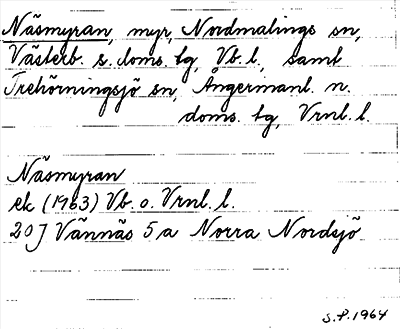 Näsmyran, myr, Nordmalings sn,
Västerb. s. doms. tg, Vb. l., samt
Trehörningsjö sn, Ångermanl. n.
doms. tg, Vrnl. l.
Näsmyran
ek (1963) Vb. o. Vrnl. l.
20J Vännäs 5a Norra Nordsjö
S.P. 1964